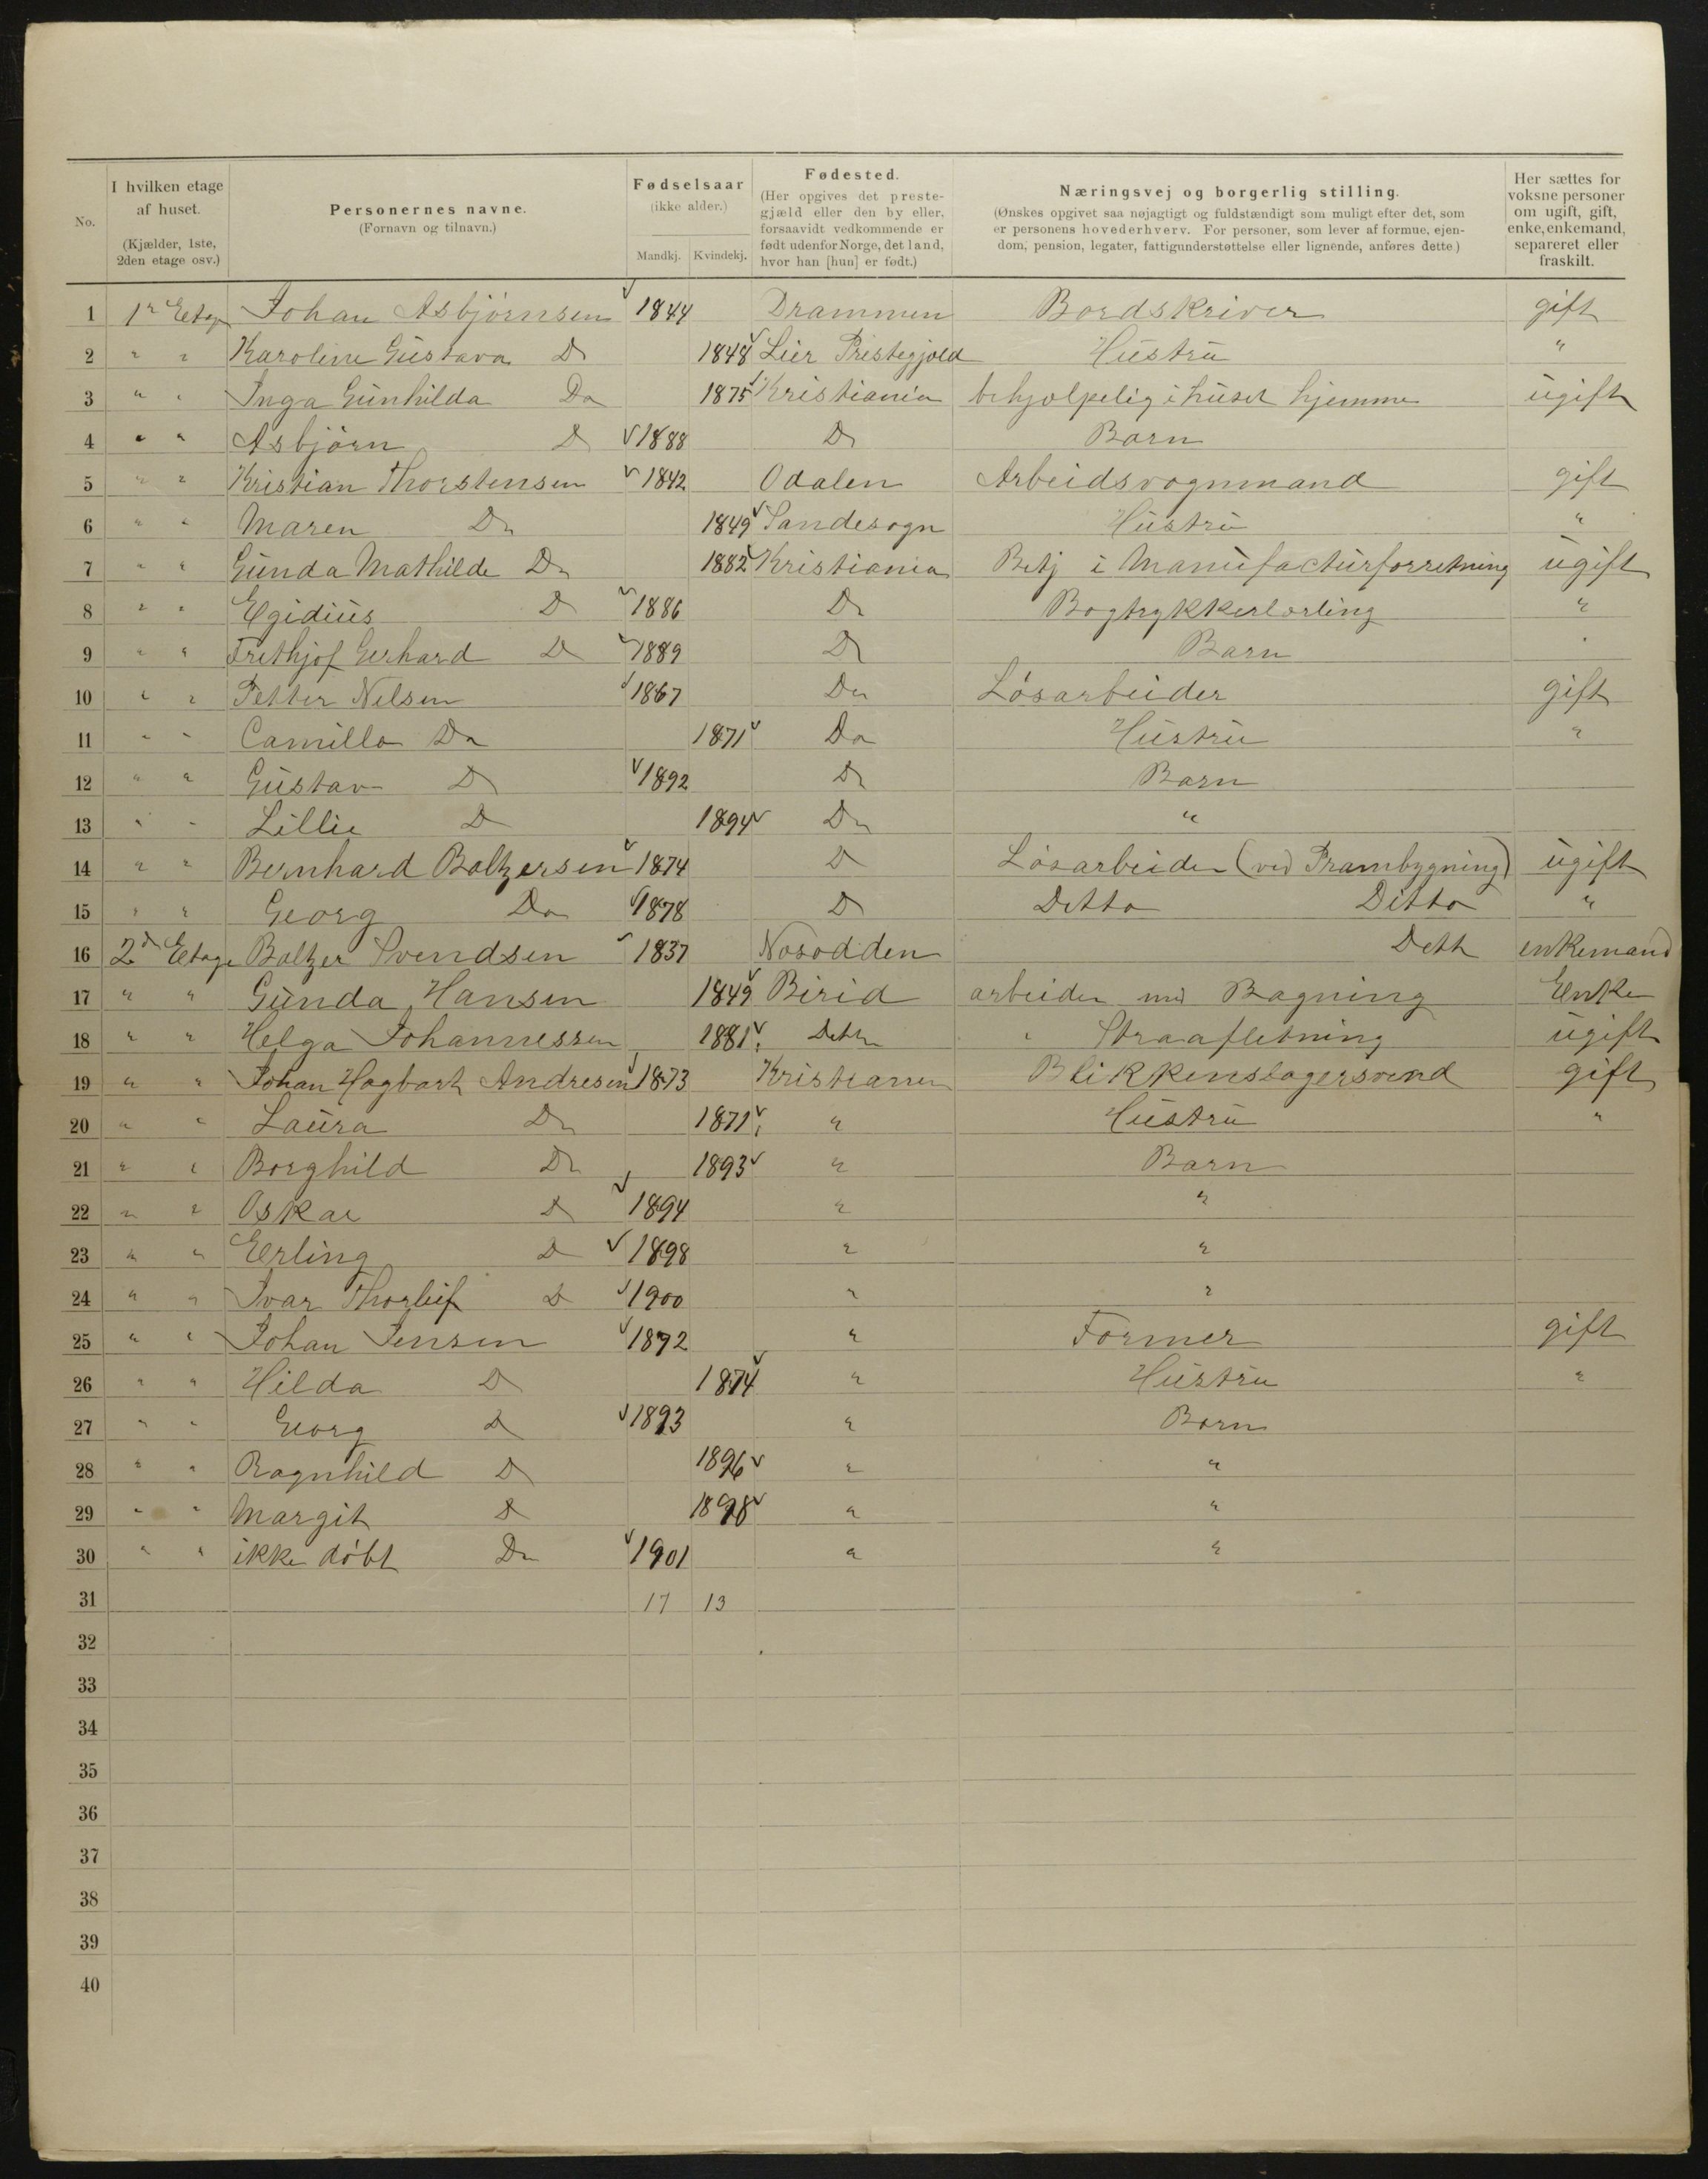 No.
I hvilken etage af huset. (Kjælder, 1ste, 2den etage osv.)
Personernes navne. (Fornavn og tilnavn.)
Fødselsaar (ikke alder.) Mandkj. Kvindekj.
Fødested. (Her opgives det prestegjæld eller den by eller, forsaavidt vedkommende er født udenfor Norge, det land, hvor han [hun] er født.)
Næringsvej og borgerlig stilling. (Ønskes opgivet saa nøjagtigt og fuldstændigt som muligt efter det, som er personens hovederhverv. For personer, som lever af formue, ejendom, pension, legater, fattigunderstøttelse eller lignende, anføres dette.)
Her sættes for voksne personer om ugift, gift, enke, enkemand, separeret eller fraskilt.
1 1ste Etage Johan Asbjørnsen 1844 Drammen Bordskriver gift
2 " " Karoline Gustava Do 1848 Lier Prestegjæld Hustru "
3 " " Inga Gunhilda Do 1875 Kristiania behjælpelig i huset hjemme ugift
4 " " Asbjørn Do 1888 Do Barn
5 " " Kristian Thorstensen 1842 Odalen Arbeidsvognmand gift
6 " " Maren Do 1849 Sandesogn Hustru "
7 " " Gunda Mathilde Do 1882 Kristiania Betj i Manufacturforretning ugift
8 " " Egidius Do 1886 Do Bogtrykkerlærling "
9 " " Frethjof Gerhard Do 1889 Do Barn
10 " " Petter Nelsen 1867 Do Løsarbeider gift
11 " " Camilla Do 1871 Do Hustru "
12 " " Gustav Do 1892 Do Barn
13 " " Lillie Do 1894 Do "
14 " " Bernhard Baltzersen 1874 Do Løsarbeider (ved Prambygning) ugift
15 " " Georg Do 1878 Do Ditto Ditto "
16 2den Etage Baltzer Svendsen 1837 Nesodden Ditto enkemand
17 " " Gunda Hansen 1849 Birid arbeider med Bagning Enke
18 " " Helga Johannessen 1881 Ditto " Straafletning ugift
19 " " Johan Hagbart Andresen 1873 Kristiania Blikkenslagersvend gift
20 " " Laura Do 1871 " Hustru "
21 " " Borghild Do 1893 " Barn
22 " " Oskar Do 1894 " "
23 " " Erling Do 1898 " "
24 " " Ivar Thorleif Do 1900 " "
25 " " Johan Jensen 1872 " Former gift
26 " " Hilda Do 1874 " Hustru "
27 " " Georg Do 1893 " Barn
28 " " Ragnhild Do 1896 " "
29 " " Margit Do 1898 " "
30 " " ikke døbt Do 1901 " "
31 17 13
32
33
34
35
36
37
38
39
40